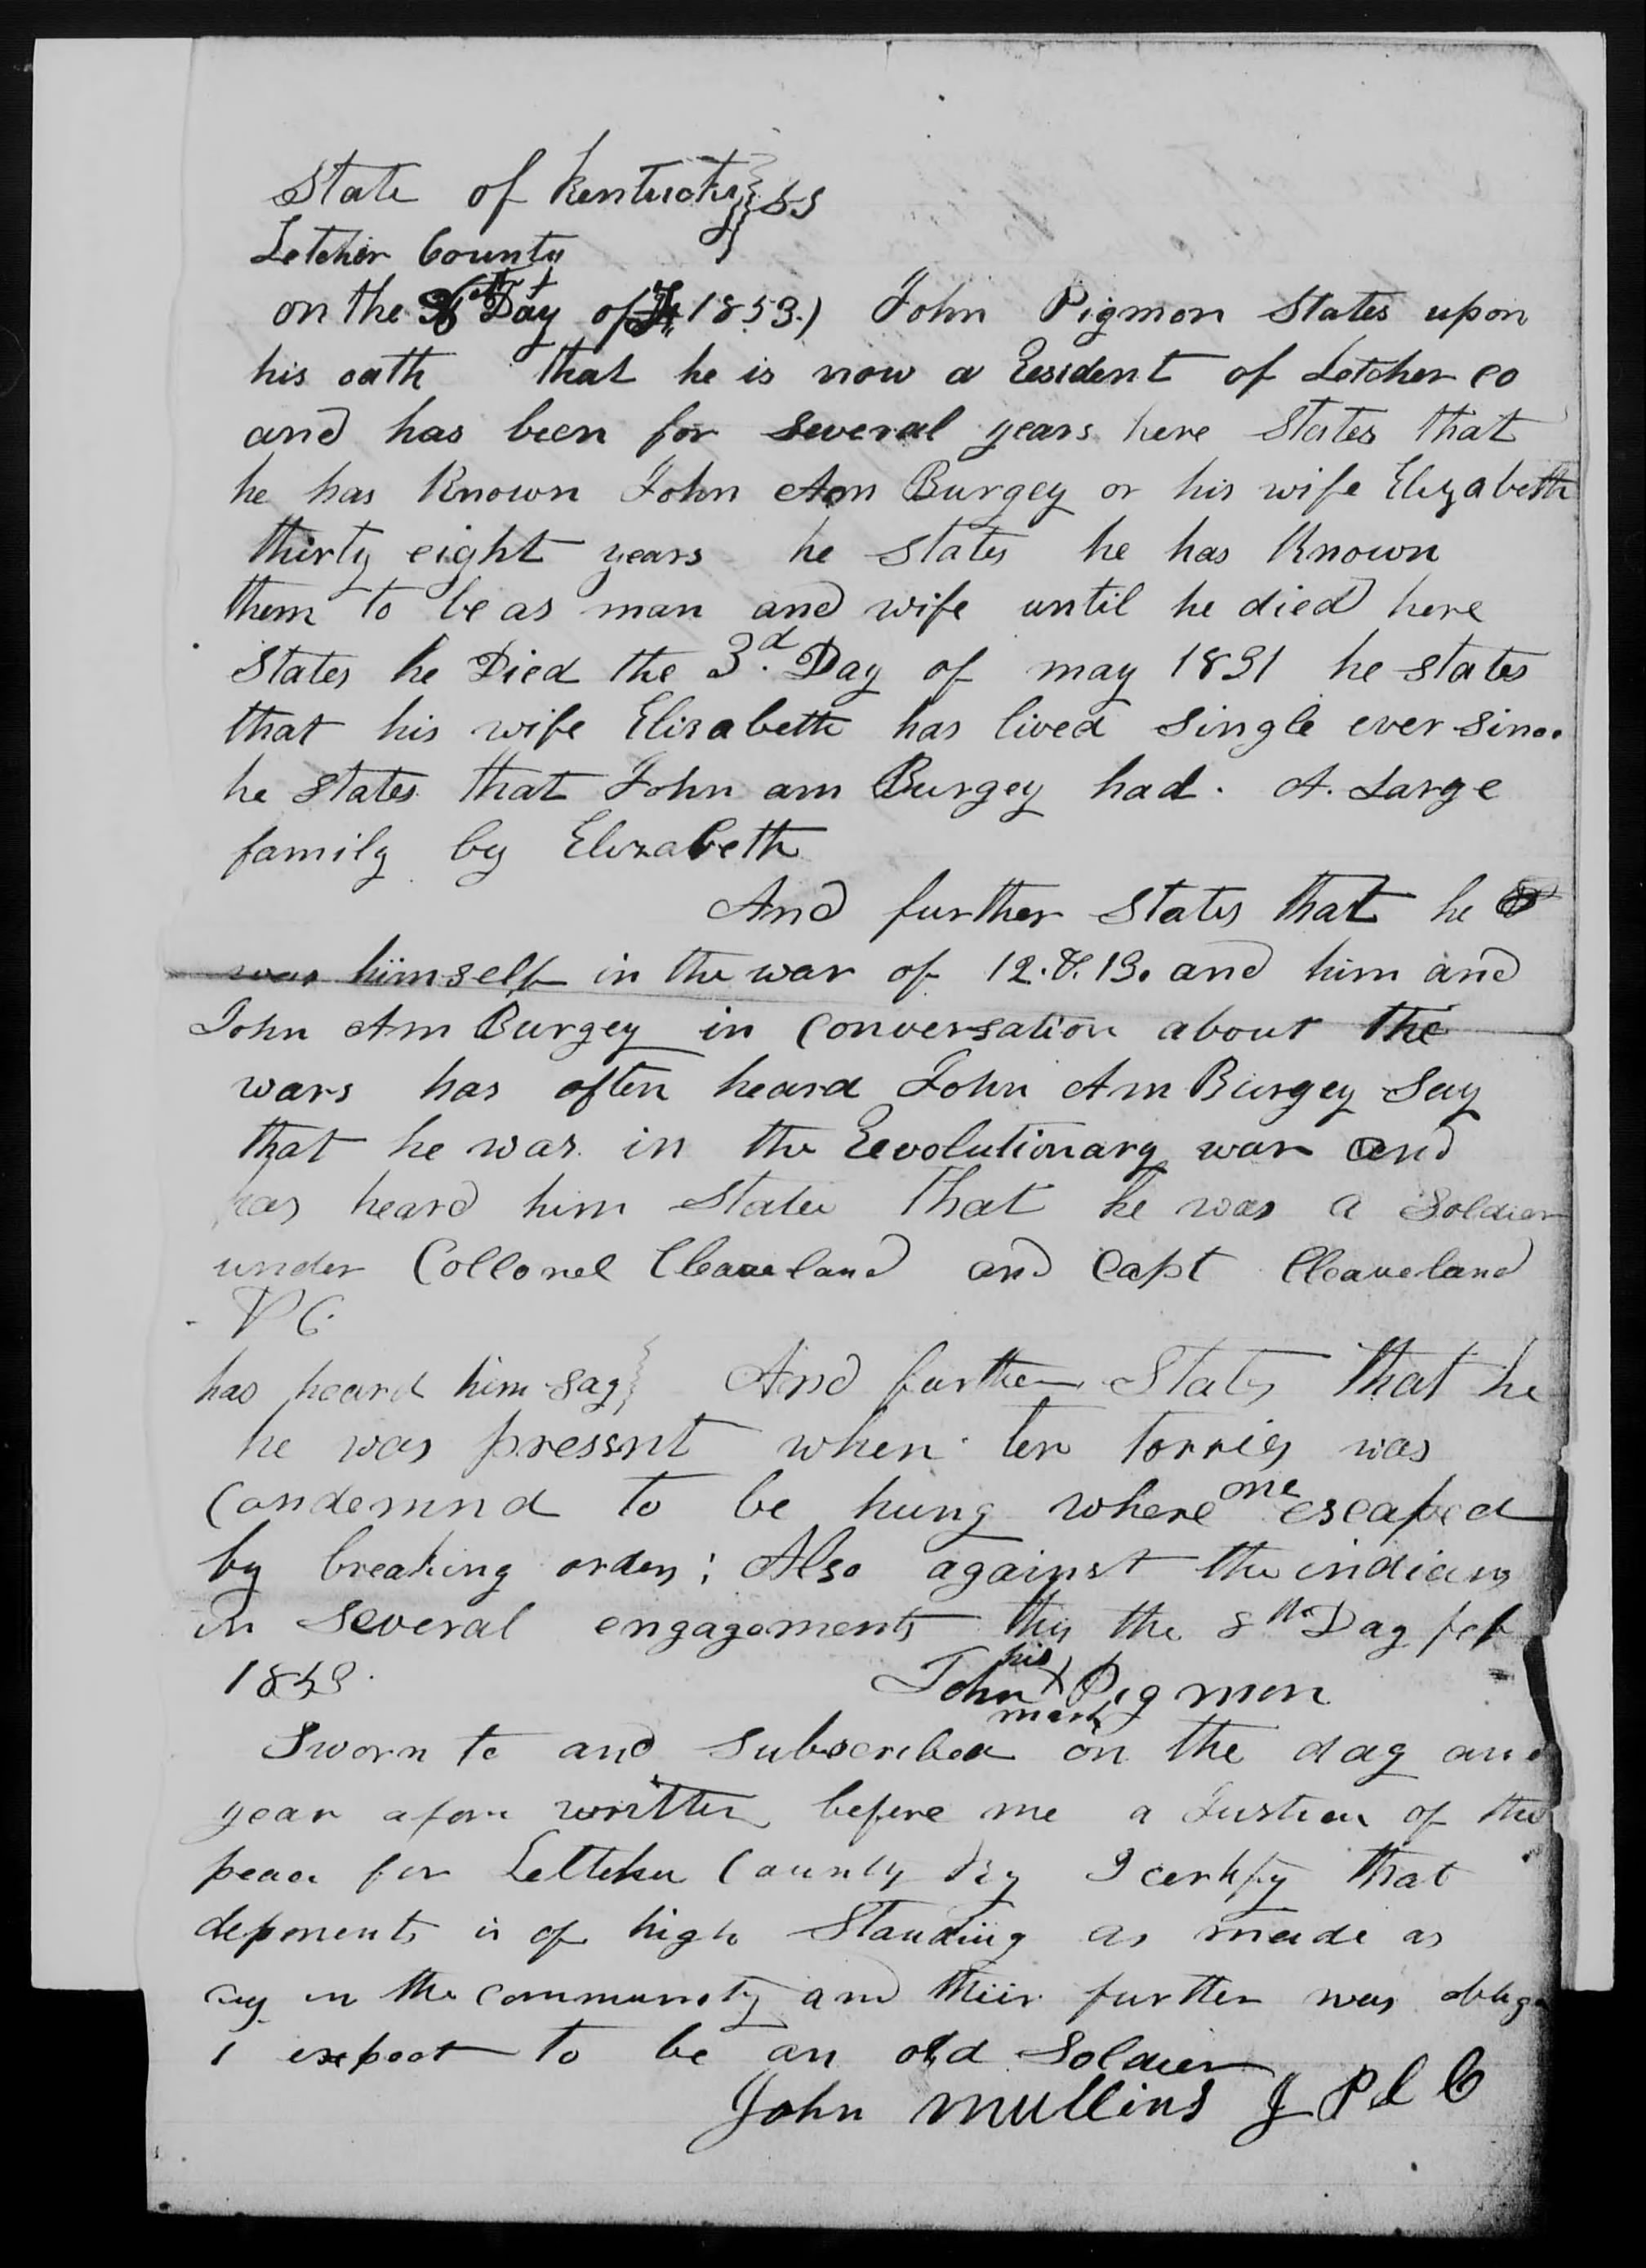 State of Kentucky } SS
Letcher County
on the Day of 1853.) John Pigmon States upon
his oath that he is now a Resident of Letcher co
and has been for several years here States that
he has Known John Am Burgey or his wife Elizabeth
thirty eight years he states he has Known
them to be as man and wife until he died here
States he Died the 3d. Day of may 1831 he states
that his wife Elisabeth has lived single ever since
he states that John am Burgey had. A. Large
family by Elizabeth
And further States that he
was himself in the war of 12. & 13. and him and
John Am Burgey in conversation about the
wars has often heard John Am Burgey Say
that he was in the Revolutionary war and
has heard him State that he was a Soldier
under Collonel Cleaveland and Capt Cleaveland

has heard him say} And further States that he
he was pressnt when ten torries was
Condemnd to be hung where one escaped
by breaking orders; Also against the indians
in Several engagements this the 8th Day feb
1853. John his X mark Pigmon
Sworn to and Subscribed on the day and
year afore written before me a Justice of the
peace for Letcher County Ky I certify that
deponents is of high Standing as made as
any in the community and their further was
I expect to be an old Soldier
John Mullins J P L C